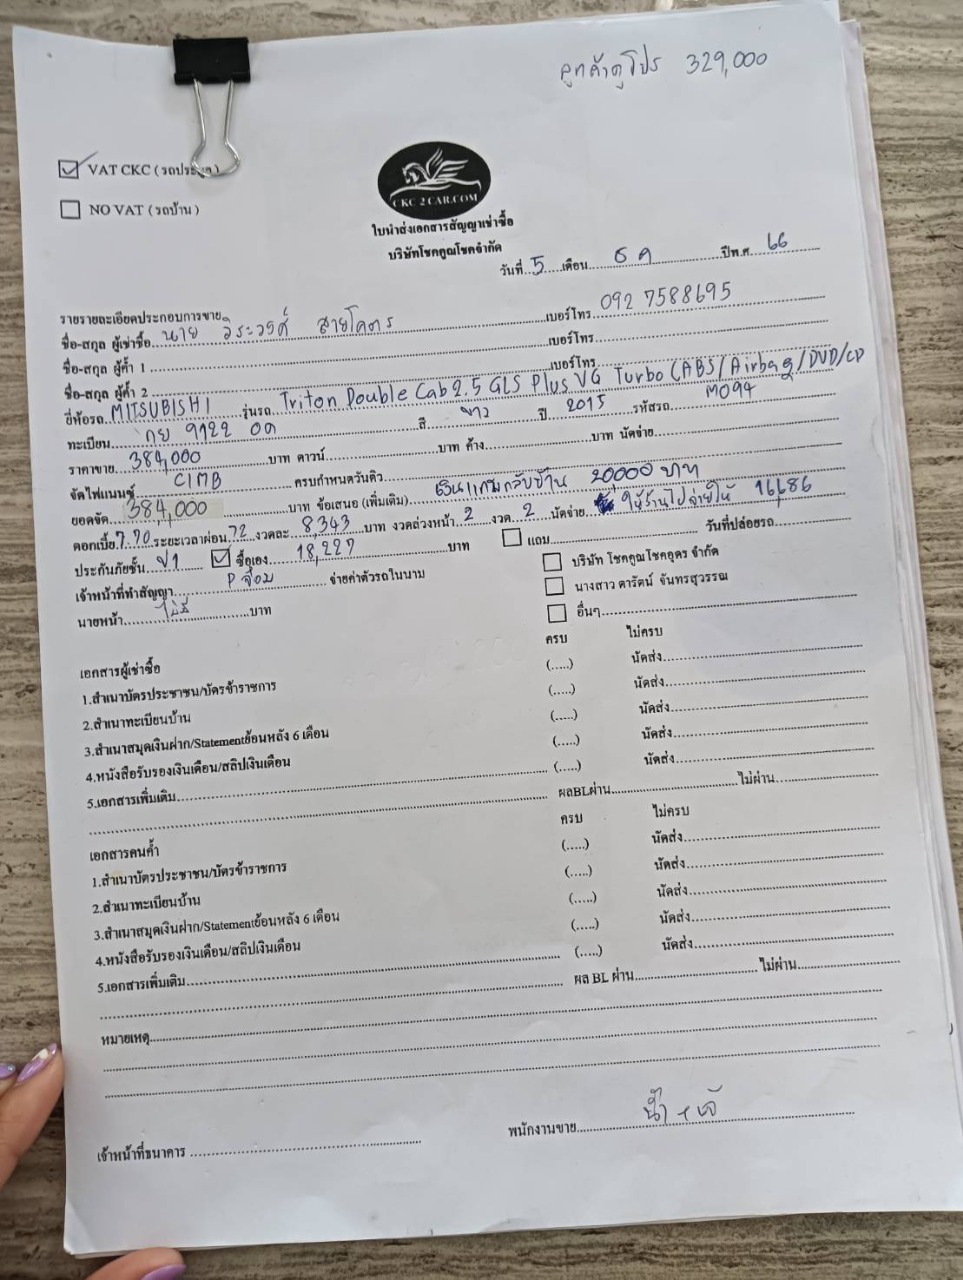 ลูกค้าดูโปร 329,000
VAT CKC (รถประมูล)
NO VAT (รถบ้าน)
CKC 2 CAR.COM
ใบนำส่งเอกสารสัญญาเช่าซื้อ
บริษัทโชคคูณโชคจำกัด
วันที่..5.....เดือน......ธ ค..........ปีพ.ศ...66
รายรายละเอียดประกอบการขาย
ชื่อ-สกุล ผู้เช่าซื้อ..นาย วิระวงศ์ สายโคตร..........เบอร์โทร..092 7588695
ชื่อ-สกุล ผู้ค้ำ 1 ..........เบอร์โทร..........
ชื่อ-สกุล ผู้ค้ำ 2 ..........เบอร์โทร..........
ยี่ห้อรถ..MITSUBISHI......รุ่นรถ..Triton Double Cab 2.5 GLS Plus VG Turbo (ABS/Airbag/DVD/CD
ทะเบียน......กย 9122 อด..........สี......ขาว......ปี...2015......รหัสรถ......M094
ราคาขาย...384,000..........บาท ดาวน์..........บาท ค้าง..........บาท นัดจ่าย..........
จัดไฟแนนซ์......CIMB..........ครบกำหนดวันคิว..........
ยอดจัด...384,000..........บาท ข้อเสนอ (เพิ่มเติม)....เงินแถมกลับบ้าน 20,000 บาท
ดอกเบี้ย7.70ระยะเวลาผ่อน..72..งวดละ...8,343...บาท งวดล่วงหน้า..2...งวด...2...นัดจ่าย....ให้ร้านไปจ่ายให้ 16,686
ประกันภัยชั้น...ป1...... ซื้อเอง...18,227..........บาท แถม..........วันที่ปล่อยรถ..........
เจ้าหน้าที่ทำสัญญา......P จ๋อม......จ่ายค่าตัวรถในนาม บริษัท โชคคูณโชคอุดร จำกัด
นายหน้า......ไม่มี..........บาท นางสาว ดารัตน์ จันทรสุวรรณ
อื่นๆ..........
เอกสารผู้เช่าซื้อ ครบ ไม่ครบ
1.สำเนาบัตรประชาชน/บัตรข้าราชการ (.....) นัดส่ง..........
2.สำเนาทะเบียนบ้าน (.....) นัดส่ง..........
3.สำเนาสมุดเงินฝาก/Statementย้อนหลัง 6 เดือน (.....) นัดส่ง..........
4.หนังสือรับรองเงินเดือน/สลิปเงินเดือน (.....) นัดส่ง..........
5.เอกสารเพิ่มเติม..........(.....) นัดส่ง..........
..........ผลBLผ่าน..........ไม่ผ่าน..........
เอกสารคนค้ำ ครบ ไม่ครบ
1.สำเนาบัตรประชาชน/บัตรข้าราชการ (.....) นัดส่ง..........
2.สำเนาทะเบียนบ้าน (.....) นัดส่ง..........
3.สำเนาสมุดเงินฝาก/Statementย้อนหลัง 6 เดือน (.....) นัดส่ง..........
4.หนังสือรับรองเงินเดือน/สลิปเงินเดือน (.....) นัดส่ง..........
5.เอกสารเพิ่มเติม..........(.....) นัดส่ง..........
..........ผล BL ผ่าน..........ไม่ผ่าน..........
หมายเหตุ..........
เจ้าหน้าที่ธนาคาร .......... พนักงานขาย..........